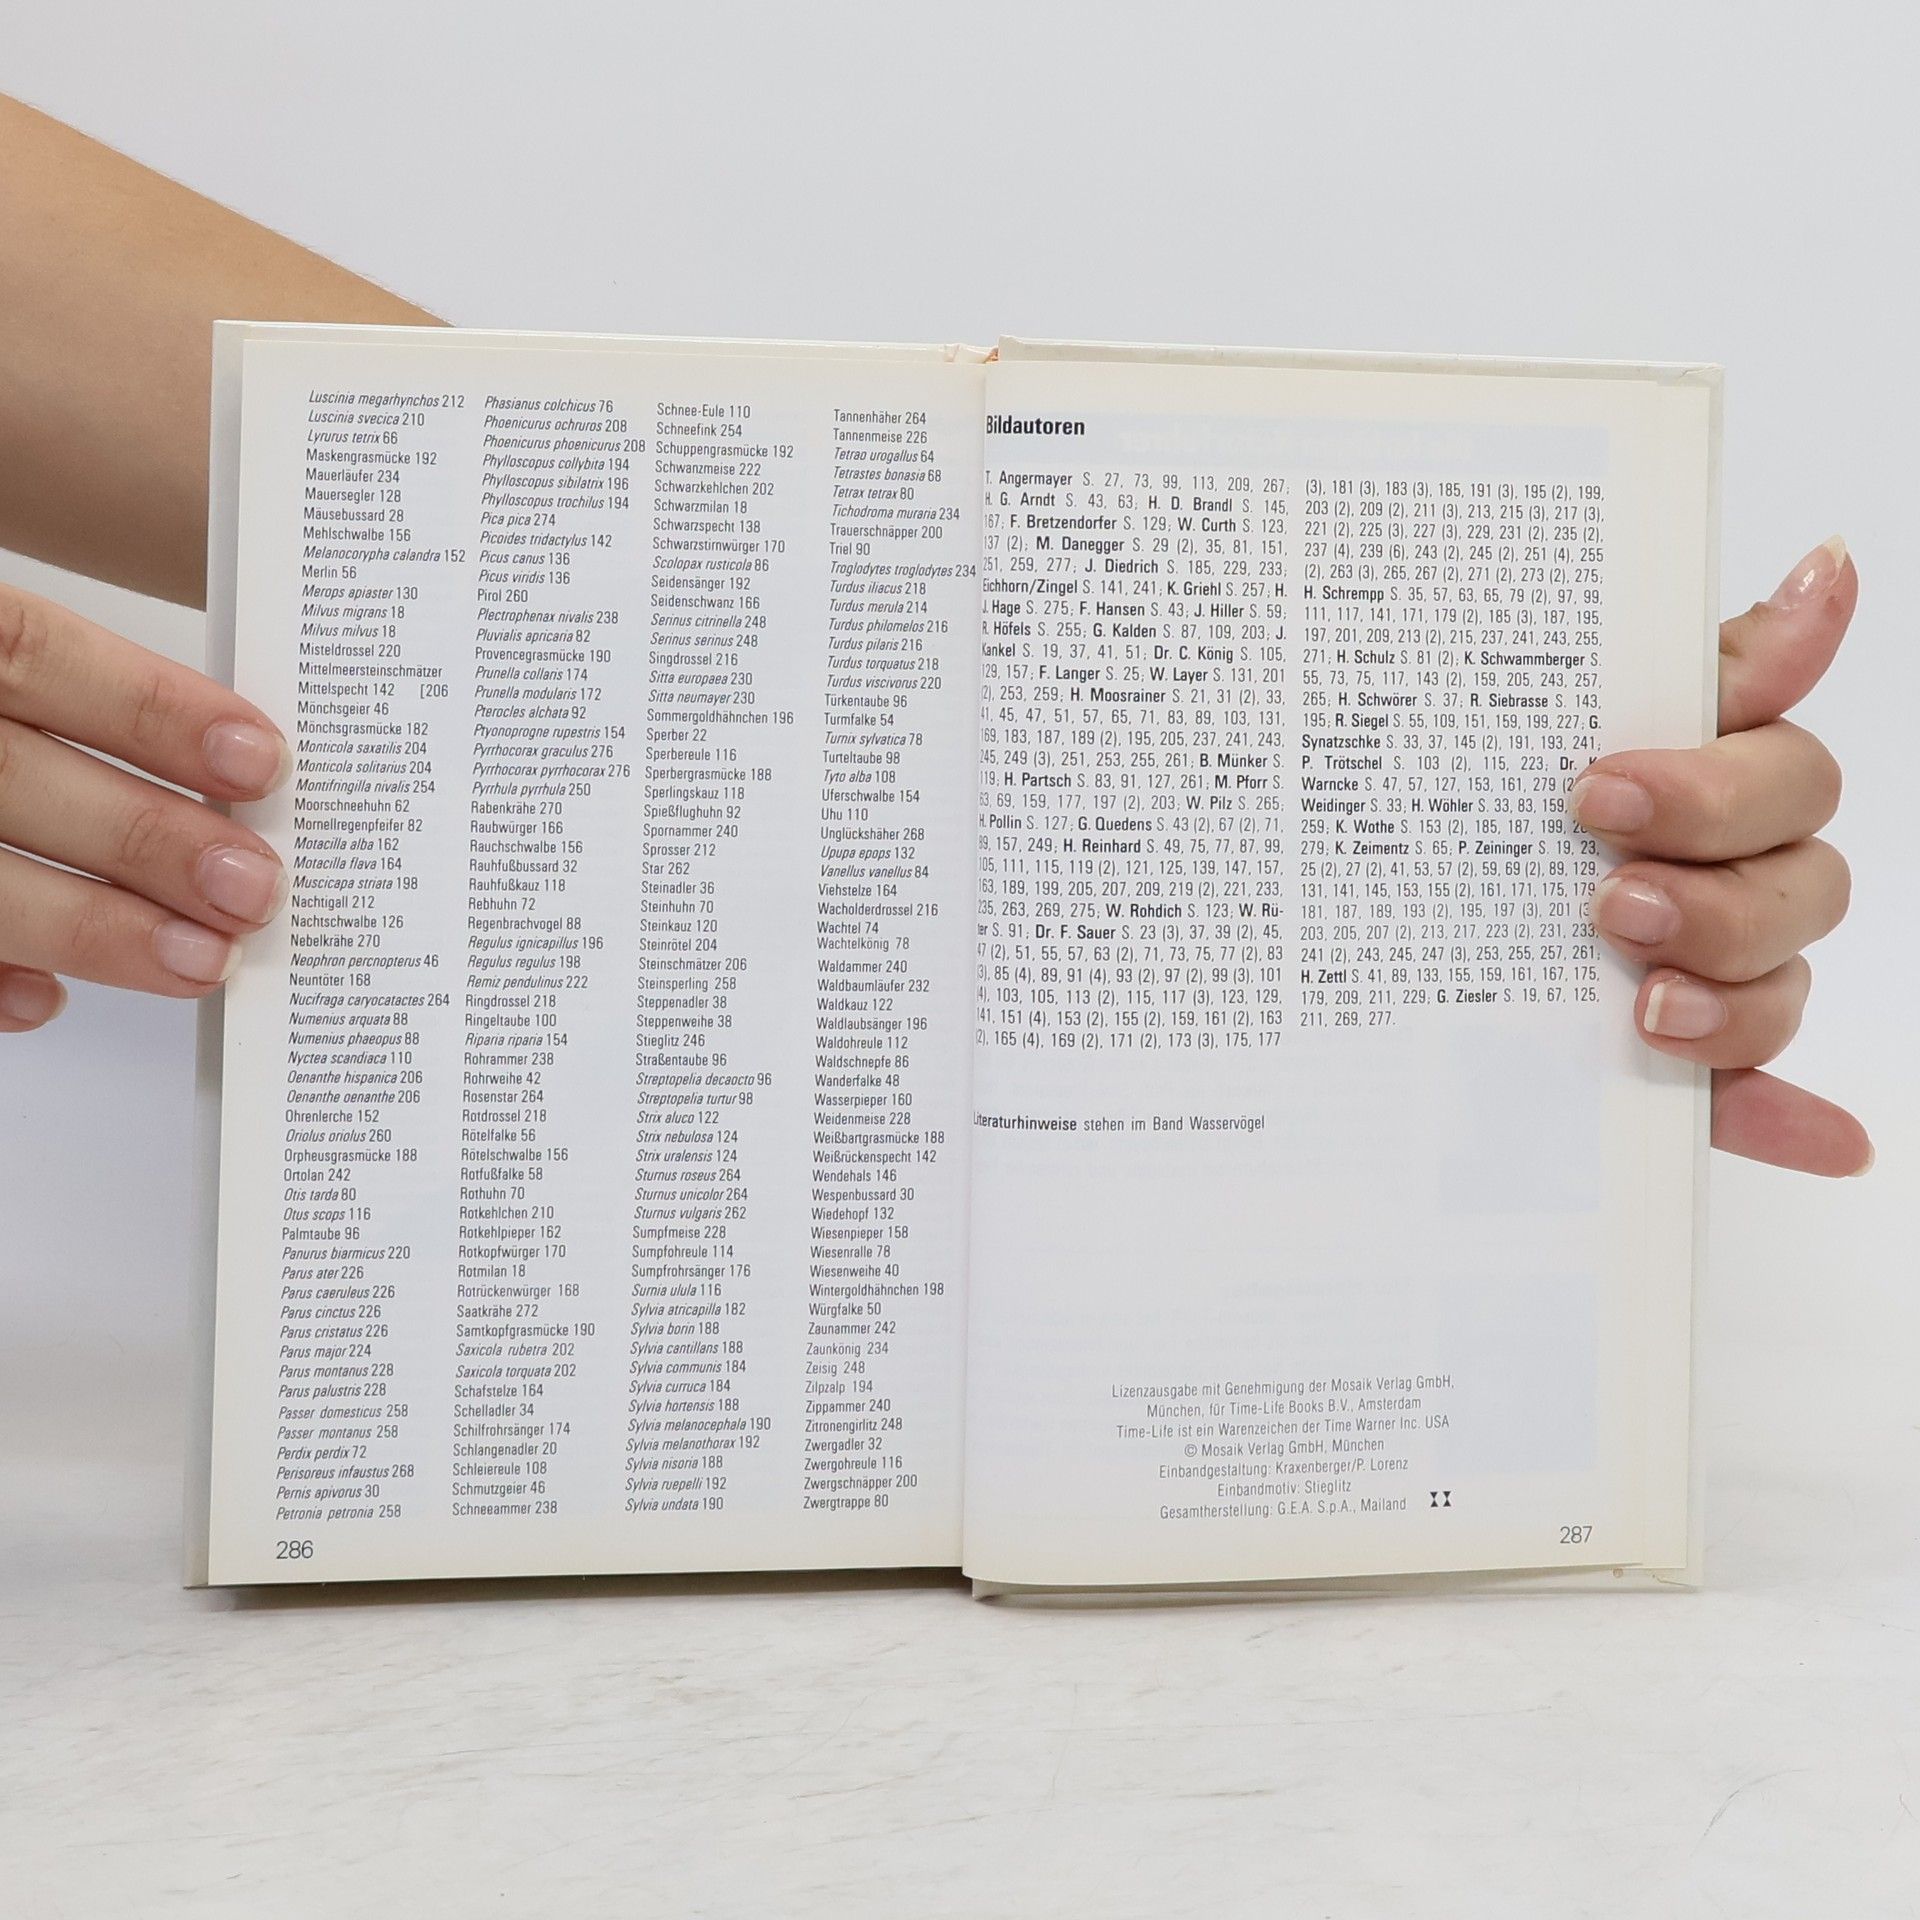 Luscinia megarhynchos 212
Luscinia svecica 210
Lyrurus tetrix 66
Maskengrasmücke 192
Mauerläufer 234
Mauersegler 128
Mäusebussard 28
Mehlschwalbe 156
Melanocorypha calandra 152
Merlin 56
Merops apiaster 130
Milvus migrans 18
Milvus milvus 18
Misteldrossel 220
Mittelmeersteinschmätzer
Mittelspecht 142 [206
Mönchsgeier 46
Mönchsgrasmücke 182
Monticola saxatilis 204
Monticola solitarius 204
Montifringilla nivalis 254
Moorschneehuhn 62
Mornellregenpfeifer 82
Motacilla alba 162
Motacilla flava 164
Muscicapa striata 198
Nachtigall 212
Nachtschwalbe 126
Nebelkrähe 270
Neophron percnopterus 46
Neuntöter 168
Nucifraga caryocatactes 264
Numenius arquata 88
Numenius phaeopus 88
Nyctea scandiaca 110
Oenanthe hispanica 206
Oenanthe oenanthe 206
Ohrenlerche 152
Oriolus oriolus 260
Orpheusgrasmücke 188
Ortolan 242
Otis tarda 80
Otus scops 116
Palmtaube 96
Panurus biarmicus 220
Parus ater 226
Parus caeruleus 226
Parus cinctus 226
Parus cristatus 226
Parus major 224
Parus montanus 228
Parus palustris 228
Passer domesticus 258
Passer montanus 258
Perdix perdix 72
Perisoreus infaustus 268
Pernis apivorus 30
Petronia petronia 258
Phasianus colchicus 76
Phoenicurus ochruros 208
Phoenicurus phoenicurus 208
Phylloscopus collybita 194
Phylloscopus sibilatrix 196
Phylloscopus trochilus 194
Pica pica 274
Picoides tridactylus 142
Picus canus 136
Picus viridis 136
Pirol 260
Plectrophenax nivalis 238
Pluvialis apricaria 82
Provencegrasmücke 190
Prunella collaris 174
Prunella modularis 172
Pterocles alchata 92
Ptyonoprogne rupestris 154
Pyrrhocorax graculus 276
Pyrrhocorax pyrrhocorax 276
Pyrrhula pyrrhula 250
Rabenkrähe 270
Raubwürger 166
Rauchschwalbe 156
Rauhfußbussard 32
Rauhfußkauz 118
Rebhuhn 72
Regenbrachvogel 88
Regulus ignicapillus 196
Regulus regulus 198
Remiz pendulinus 222
Ringdrossel 218
Ringeltaube 100
Riparia riparia 154
Rohrammer 238
Rohrweihe 42
Rosenstar 264
Rotdrossel 218
Rötelfalke 56
Rötelschwalbe 156
Rotfußfalke 58
Rothuhn 70
Rotkehlchen 210
Rotkehlpieper 162
Rotkopfwürger 170
Rotmilan 18
Rotrückenwürger 168
Saatkrähe 272
Samtkopfgrasmücke 190
Saxicola rubetra 202
Saxicola torquata 202
Schafstelze 164
Schelladler 34
Schilfrohrsänger 174
Schlangenadler 20
Schleiereule 108
Schmutzgeier 46
Schneeammer 238
Schnee-Eule 110
Schneefink 254
Schuppengrasmücke 192
Schwanzmeise 222
Schwarzkehlchen 202
Schwarzmilan 18
Schwarzspecht 138
Schwarzstirnwürger 170
Scolopax rusticola 86
Seidensänger 192
Seidenschwanz 166
Serinus citrinella 248
Serinus serinus 248
Singdrossel 216
Sitta europaea 230
Sitta neumayer 230
Sommergoldhähnchen 196
Sperber 22
Sperbereule 116
Sperbergrasmücke 188
Sperlingskauz 118
Spießflughuhn 92
Spornammer 240
Sprosser 212
Star 262
Steinadler 36
Steinhuhn 70
Steinkauz 120
Steinrötel 204
Steinschmätzer 206
Steinsperling 258
Steppenadler 38
Steppenweihe 38
Stieglitz 246
Straßentaube 96
Streptopelia decaocto 96
Streptopelia turtur 98
Strix aluco 122
Strix nebulosa 124
Strix uralensis 124
Sturnus roseus 264
Sturnus unicolor 264
Sturnus vulgaris 262
Sumpfmeise 228
Sumpfohreule 114
Sumpfrohrsänger 176
Surnia ulula 116
Sylvia atricapilla 182
Sylvia borin 188
Sylvia cantillans 188
Sylvia communis 184
Sylvia curruca 184
Sylvia hortensis 188
Sylvia melanocephala 190
Sylvia melanothorax 192
Sylvia nisoria 188
Sylvia ruepelli 192
Sylvia undata 190
Tannenhäher 264
Tannenmeise 226
Tetrao urogallus 64
Tetrastes bonasia 68
Tetrax tetrax 80
Tichodroma muraria 234
Trauerschnäpper 200
Triel 90
Troglodytes troglodytes 234
Turdus iliacus 218
Turdus merula 214
Turdus philomelos 216
Turdus pilaris 216
Turdus torquatus 218
Turdus viscivorus 220
Türkentaube 96
Turmfalke 54
Turnix sylvatica 78
Turteltaube 98
Tyto alba 108
Uferschwalbe 154
Uhu 110
Unglückshäher 268
Upupa epops 132
Vanellus vanellus 84
Viehstelze 164
Wacholderdrossel 216
Wachtel 74
Wachtelkönig 78
Waldammer 240
Waldbaumläufer 232
Waldkauz 122
Waldlaubsänger 196
Waldohreule 112
Waldschnepfe 86
Wanderfalke 48
Wasserpieper 160
Weidenmeise 228
Weißbartgrasmücke 188
Weißrückenspecht 142
Wendehals 146
Wespenbussard 30
Wiedehopf 132
Wiesenpieper 158
Wiesenralle 78
Wiesenweihe 40
Wintergoldhähnchen 198
Würgfalke 50
Zaunammer 242
Zaunkönig 234
Zeisig 248
Zilpzalp 194
Zippammer 240
Zitronengirlitz 248
Zwergadler 32
Zwergohreule 116
Zwergschnäpper 200
Zwergtrappe 80
286
Bildautoren
T. Angermayer S. 27, 73, 99, 113, 209, 267;
H. G. Arndt S. 43, 63; H. D. Brandl S. 145,
167; F. Bretzendorfer S. 129; W. Curth S. 123,
137 (2); M. Danegger S. 29 (2), 35, 81, 151,
251, 259, 277; J. Diedrich S. 185, 229, 233;
Eichhorn/Zingel S. 141, 241; K. Griehl S. 257; H.
J. Hage S. 275; F. Hansen S. 43; J. Hiller S. 59;
R. Höfels S. 255; G. Kalden S. 87, 109, 203; J.
Kankel S. 19, 37, 41, 51; Dr. C. König S. 105,
129, 157; F. Langer S. 25; W. Layer S. 131, 201
(2), 253, 259; H. Moosrainer S. 21, 31 (2), 33,
41, 45, 47, 51, 57, 65, 71, 83, 89, 103, 131,
169, 183, 187, 189 (2), 195, 205, 237, 241, 243,
245, 249 (3), 251, 253, 255, 261; B. Münker S.
119; H. Partsch S. 83, 91, 127, 261; M. Pforr S.
63, 69, 159, 177, 197 (2), 203; W. Pilz S. 265;
H. Pollin S. 127; G. Quedens S. 43 (2), 67 (2), 71,
89, 157, 249; H. Reinhard S. 49, 75, 77, 87, 99,
105, 111, 115, 119 (2), 121, 125, 139, 147, 157,
163, 189, 199, 205, 207, 209, 219 (2), 221, 233,
235, 263, 269, 275; W. Rohdich S. 123; W. Rü-
ter S. 91; Dr. F. Sauer S. 23 (3), 37, 39 (2), 45,
47 (2), 51, 55, 57, 63 (2), 71, 73, 75, 77 (2), 83
(3), 85 (4), 89, 91 (4), 93 (2), 97 (2), 99 (3), 101
(4), 103, 105, 113 (2), 115, 117 (3), 123, 129,
141, 151 (4), 153 (2), 155 (2), 159, 161 (2), 163
(2), 165 (4), 169 (2), 171 (2), 173 (3), 175, 177
(3), 181 (3), 183 (3), 185, 191 (3), 195 (2), 199,
203 (2), 209 (2), 211 (3), 213, 215 (3), 217 (3),
221 (2), 225 (3), 227 (3), 229, 231 (2), 235 (2),
237 (4), 239 (6), 243 (2), 245 (2), 251 (4), 255
(2), 263 (3), 265, 267 (2), 271 (2), 273 (2), 275;
H. Schrempp S. 35, 57, 63, 65, 79 (2), 97, 99,
111, 117, 141, 171, 179 (2), 185 (3), 187, 195,
197, 201, 209, 213 (2), 215, 237, 241, 243, 255,
271; H. Schulz S. 81 (2); K. Schwammberger S.
55, 73, 75, 117, 143 (2), 159, 205, 243, 257,
265; H. Schwörer S. 37; R. Siebrasse S. 143,
195; R. Siegel S. 55, 109, 151, 159, 199, 227; G.
Synatzschke S. 33, 37, 145 (2), 191, 193, 241;
P. Trötschel S. 103 (2), 115, 223; Dr.
Warncke S. 47, 57, 127, 153, 161, 279
Weidinger S. 33; H. Wöhler S. 33, 83, 159,
259; K. Wothe S. 153 (2), 185, 187, 199,
279; K. Zeimentz S. 65; P. Zeininger S. 19, 23,
25 (2), 27 (2), 41, 53, 57 (2), 59, 69 (2), 89, 129,
131, 141, 145, 153, 155 (2), 161, 171, 175, 179
181, 187, 189, 193 (2), 195, 197 (3), 201
203, 205, 207 (2), 213, 217, 223 (2), 231, 233,
241 (2), 243, 245, 247 (3), 253, 255, 257, 261;
H. Zettl S. 41, 89, 133, 155, 159, 161, 167, 175,
179, 209, 211, 229; G. Ziesler S. 19, 67, 125,
211, 269, 277.
Literaturhinweise stehen im Band Wasservögel
Lizenzausgabe mit Genehmigung der Mosaik Verlag GmbH,
München, für Time-Life Books B.V., Amsterdam
Time-Life ist ein Warenzeichen der Time Warner Inc. USA
© Mosaik Verlag GmbH, München
Einbandgestaltung: Kraxenberger/P. Lorenz
Einbandmotiv: Stieglitz
Gesamtherstellung: G.E.A. S.p.A., Mailand
287